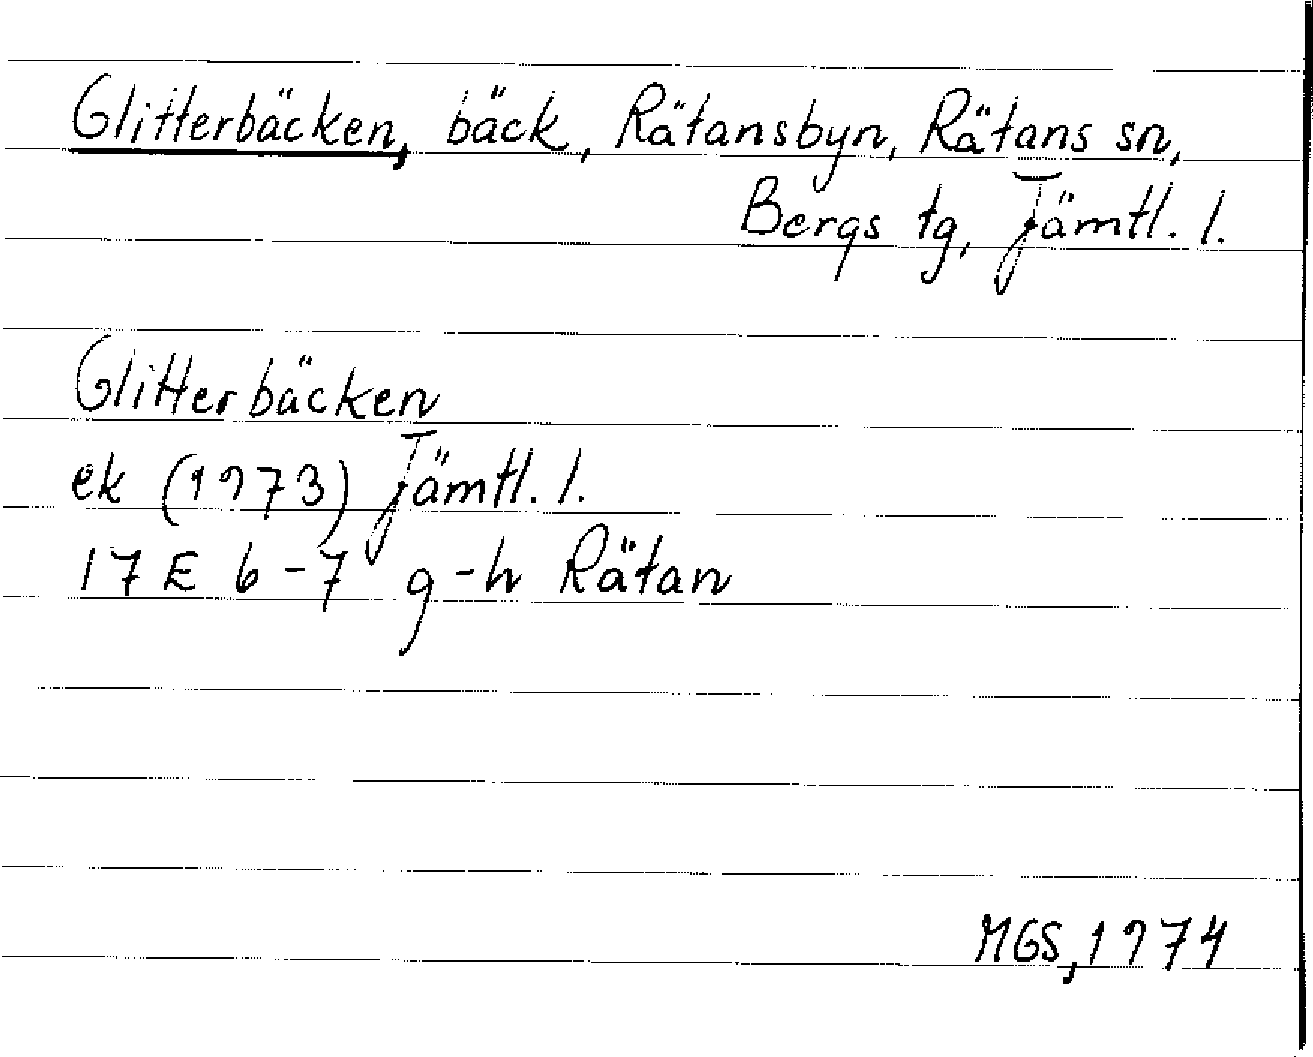 Glitterbäcken, bäck, Rätansbyn, Rätans sn,
Bergs tg, Jämtl. l.
Glitterbäcken
ek (1973) Jämtl. l.
17 E 6-7 g-h Rätan
MGS, 1974